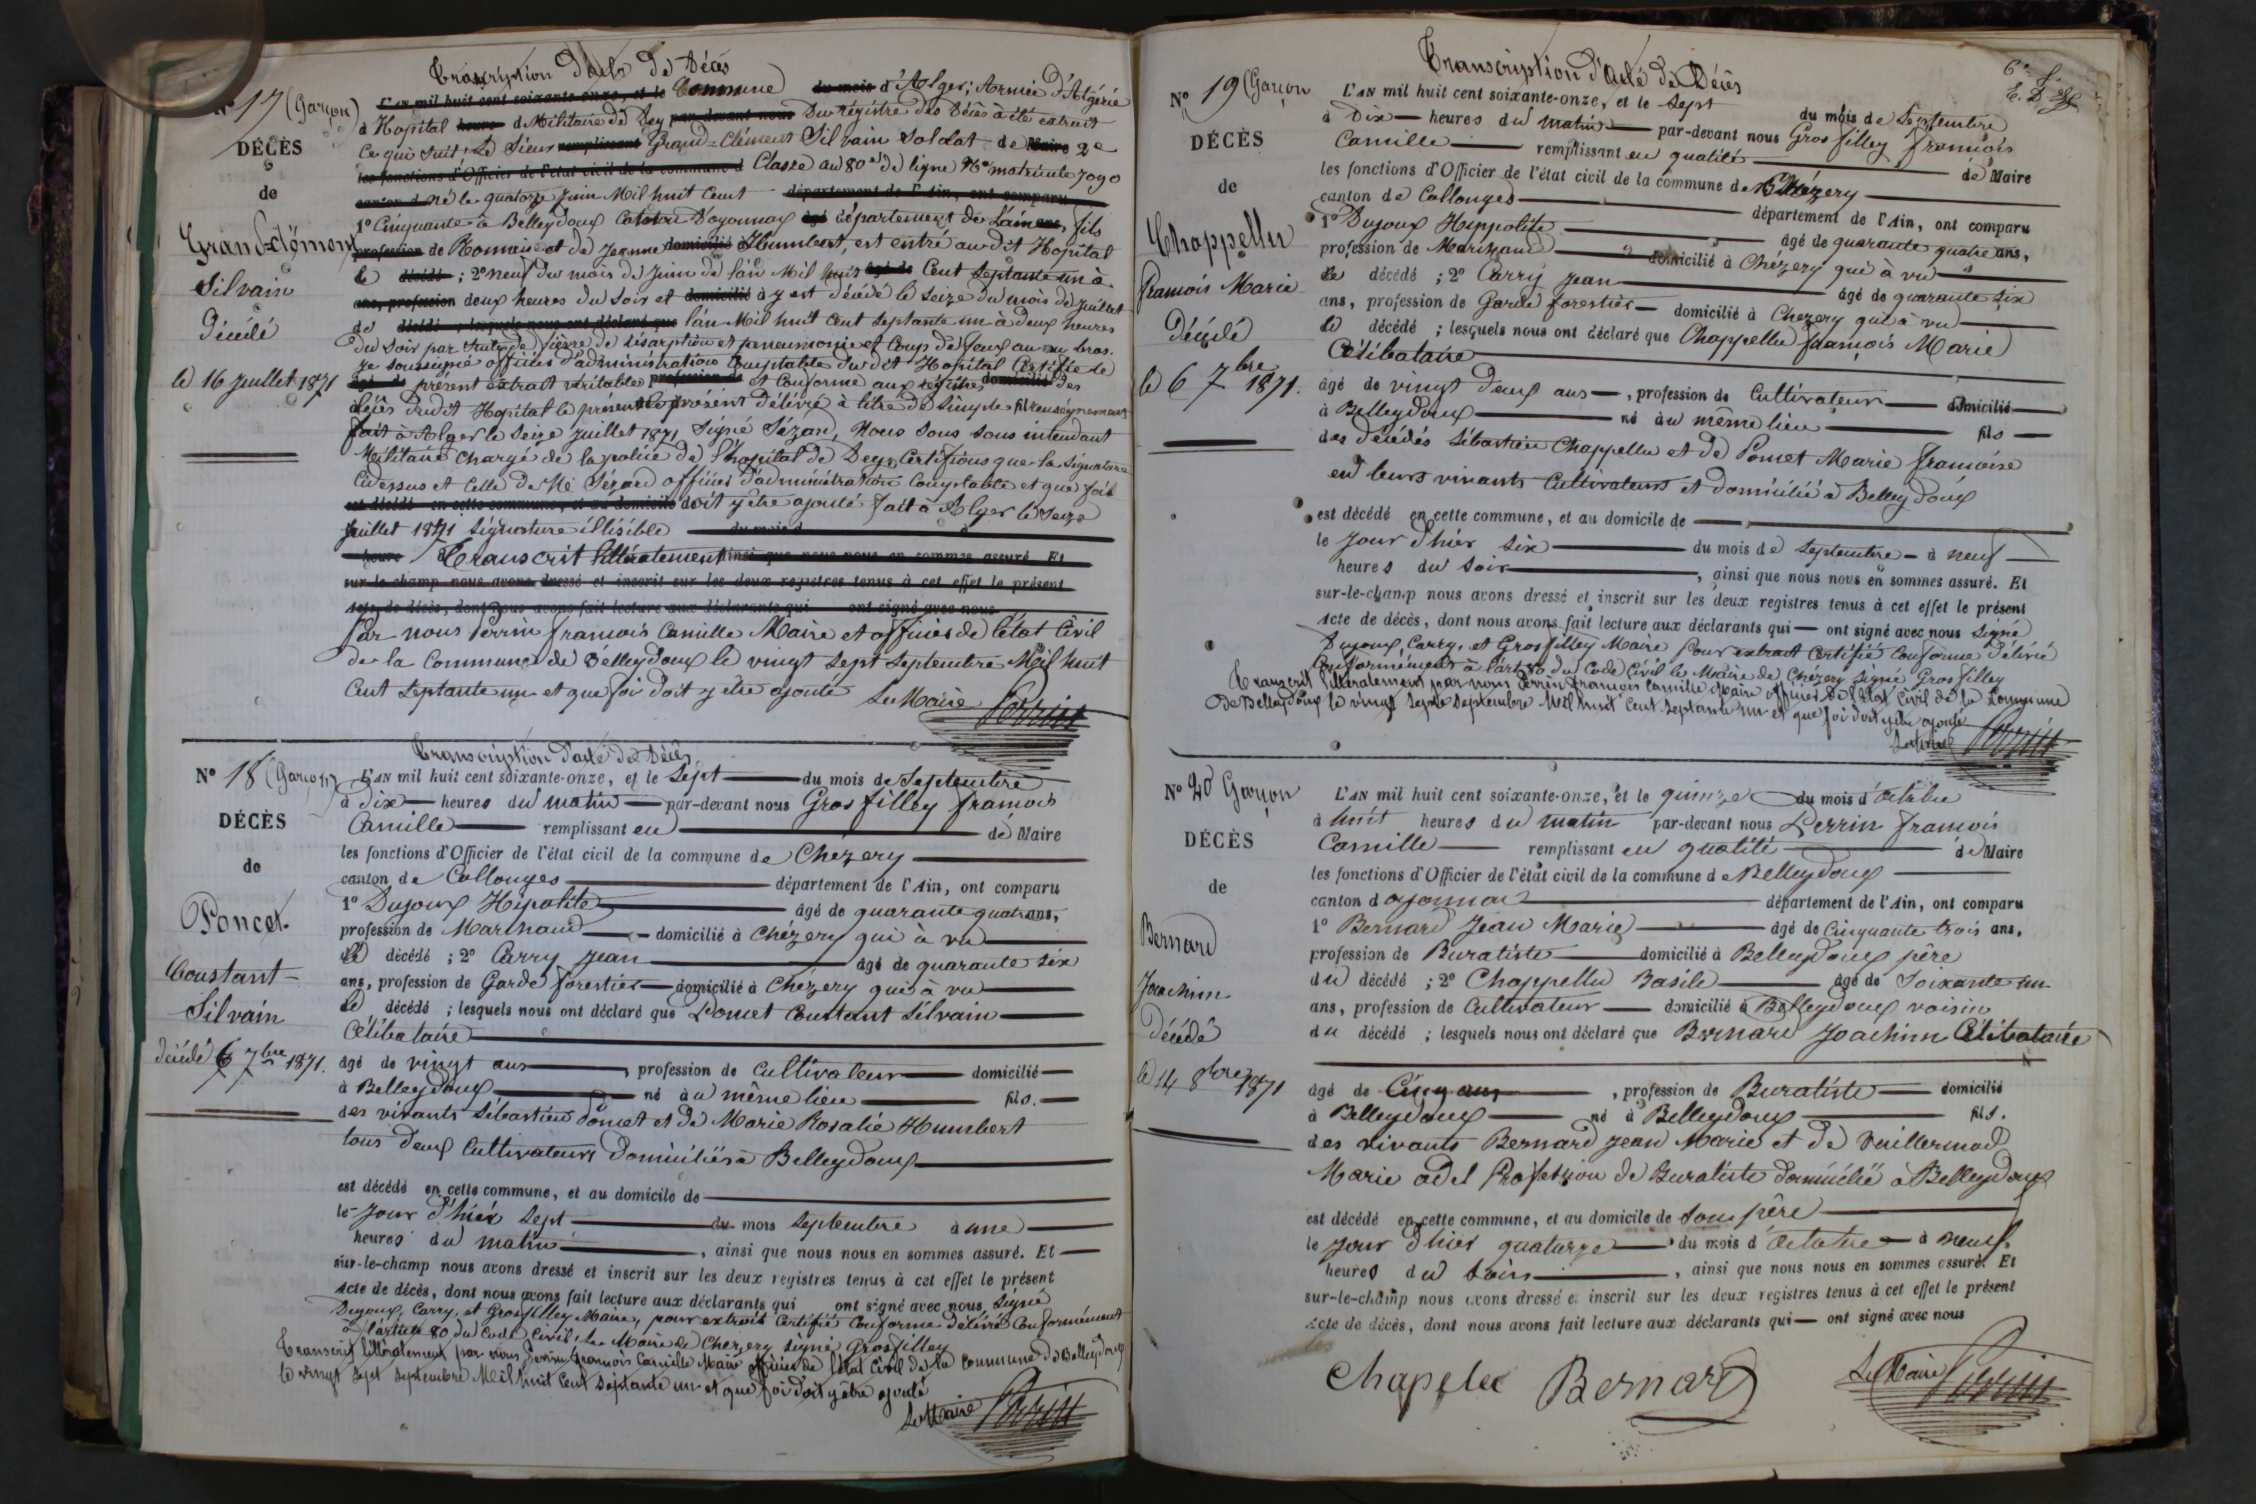 Transcription d'acte de Décès
N° 17 (Garçon)
DÉCÈS
de
Grand-Clément
Silvain
Décédé
le 16 juillet 1871
L'AN mil huit cent soixante-onze, et le Commune du mois d'Alger; Armée d'Algérie
à Hopital heure d Militaire de Dey par-devant nous Du régistre des Décès à été extrait
Ce qui suit; Le Sieur remplissant Grand-Clément Silvain Soldat de Maire 2e
les fonctions d'Officier de l'état civil de la commune d Classe au 80e de ligne No matricule 7090
canton d né le quatorze Juin Mil huit Cent département de l'Ain, ont comparu
1° Cinquante à Belleydoux Canton D'oyonnax âgé département de L'ain ans, fils
profession de Romain et de Jeanne domicilié Humbert, est entré au dit Hopital
le décédé ; 2° neuf du mois de Juin de l'an Mil huit âgé de Cent Septante un à
ans, profession deux heures du Soir et domicilié à y est décédé le Seize du mois de Juillet
de décédé ; lesquels nous ont déclaré que l'an Mil huit Cent Septante un à deux heures
du Soir par Suite de fièvre de résorption et pneumonie et Coup de feux au bras.
Je soussigné officier d'administration Comptable du dit Hopital Certifie le
âgé de présent extrait véritable profession de et Conforme aux registres domicilié des
décès du dit Hopital le présent délivré à titre de Simples fils renseignements
fait à Alger le Seize Juillet 1871 Signé Sézard, Nous Sous intendant
Militaire Chargé de la police de l'hopital de Dey, Certifions que la Signature
Cidessus et Celle de Mr Sézard officier d'administration Comptable et que foit
est décédé en cette commune, et au domicile doit y être ajouté fait à Alger le Seize
Juillet 1871 Signature illisible du mois d à
heure Transcrit littéralement ainsi que nous nous en sommes assuré. Et
sur-le-champ nous avons dressé et inscrit sur les deux registres tenus à cet effet le présent
acte de décès, dont nous avons fait lecture aux déclarants qui ont signé avec nous
Par nous Perrin françois Camille Maire et officier de l'état Civil
de la Commune de Belleydoux le vingt Sept Septembre Mil huit
Cent Septante un et que foi doit y être ajouté Le Maire Perrin
Transcription d'acte de Décès
N° 18 (Garçon)
DÉCÈS
de
Poncet
Constant
Silvain
décédé 6 7bre 1871.
L'AN mil huit cent soixante-onze, et le Sept du mois de Septembre
à Dix heures du matin par-devant nous Grosfilley françois
Camille remplissant en de Maire
les fonctions d'Officier de l'état civil de la commune de Chézery
canton de Collonges département de l'Ain, ont comparu
1° Dujoux Hipolite âgé de quarante quatre ans,
profession de Marchand domicilié à Chézery qui à vu
le décédé ; 2° Carry Jean âgé de quarante Six
ans, profession de Garde forestier domicilié à Chézery qui à vu
le décédé ; lesquels nous ont déclaré que Poncet Constant Silvain
Célibataire
âgé de vingt ans , profession de Cultivateur domicilié
à Belleydoux né au même lieu fils.
des vivants Sébastien Poncet et de Marie Rosalie Humbert
tous deux Cultivateurs Domiciliés à Belleydoux
est décédé en cette commune, et au domicile de
le Jour d'hier Sept du mois Septembre à une
heures du matin , ainsi que nous nous en sommes assuré. Et
sur-le-champ nous avons dressé et inscrit sur les deux registres tenus à cet effet le présent
acte de décès, dont nous avons fait lecture aux déclarants qui ont signé avec nous Signé
Dujoux, Carry, et Grosfilley Maire, pour extrait Certifié Conforme délivré Conformément
à l'article 80 du Code Civil, Le Maire de Chézery Signé Grosfilley
Transcrit littéralement par nous Perrin françois Camille Maire officier de l'état Civil de la Commune de Belleydoux
le vingt Sept Septembre Mil huit Cent Septante un et que foi doit y être ajouté
Le Maire Perrin
Transcription d'acte de Décès
N° 19 (Garçon
DÉCÈS
de
Chappellu
françois Marie
Décédé
le 6 7bre 1871.
L'AN mil huit cent soixante-onze, et le Sept du mois de Septembre
à Dix heures du matin par-devant nous Grosfilley françois
Camille remplissant en qualité de Maire
les fonctions d'Officier de l'état civil de la commune de Chézery
canton de Collonges département de l'Ain, ont comparu
1° Dujoux Hippolite âgé de quarante quatre ans,
profession de Marchand domicilié à Chézery qui à vu
le décédé ; 2° Carry Jean âgé de quarante Six
ans, profession de Garde forestier domicilié à Chezery qui à vu
le décédé ; lesquels nous ont déclaré que Chappellu françois Marie
Célibataire
âgé de vingt Deux ans , profession de Cultivateur domicilié
à Belleydoux né au même lieu fils
des décédés Sébastien Chappellu et de Poncet Marie françoise
en leurs vivants Cultivateurs et domicilié à Belleydoux
est décédé en cette commune, et au domicile de
le Jour d'hier Six du mois de Septembre à neuf
heures du Soir , ainsi que nous nous en sommes assuré. Et
sur-le-champ nous avons dressé et inscrit sur les deux registres tenus à cet effet le présent
acte de décès, dont nous avons fait lecture aux déclarants qui ont signé avec nous Signé
Dujoux, Carry, et Grosfilley Maire Pour extrait Certifié Conforme délivré
Conformément à l'art 80 du Code Civil le Maire de Chézery Signé Grosfilley
Transcrit littéralement par nous Perrin françois Camille Maire officier de l'état Civil de la Commune
de Belleydoux le vingt Sept Septembre Mil huit Cent Septante un et que foi doit y être ajouté
Le Maire Perrin
N° 20 Garçon
DÉCÈS
de
Bernard
Joachim
Décédé
le 14 8bre 1871
L'AN mil huit cent soixante-onze, et le quinze du mois d'octobre
à huit heures du matin par-devant nous Perrin françois
Camille remplissant en qualité de Maire
les fonctions d'Officier de l'état civil de la commune de Belleydoux
canton d oyonnax département de l'Ain, ont comparu
1° Bernard Jean Marie âgé de Cinquante trois ans,
profession de Buratiste domicilié à Belleydoux père
du décédé ; 2° Chappellu Basile âgé de Soixante un
ans, profession de Cultivateur domicilié à Belleydoux voisin
du décédé ; lesquels nous ont déclaré que Bernard Joachim Célibataire
âgé de Cinq ans , profession de Buratiste domicilié
à Belleydoux né à Belleydoux fils.
des vivants Bernard Jean Marie et de Vuillermod
Marie adel Profession de Buratiste domicilié à Belleydoux
est décédé en cette commune, et au domicile de Son père
le Jour d'hier quatorze du mois d'octobre à neuf
heures du Soir , ainsi que nous nous en sommes assuré. Et
sur-le-champ nous avons dressé et inscrit sur les deux registres tenus à cet effet le présent
acte de décès, dont nous avons fait lecture aux déclarants qui ont signé avec nous
Chapelu Bernard Le Maire Perrin